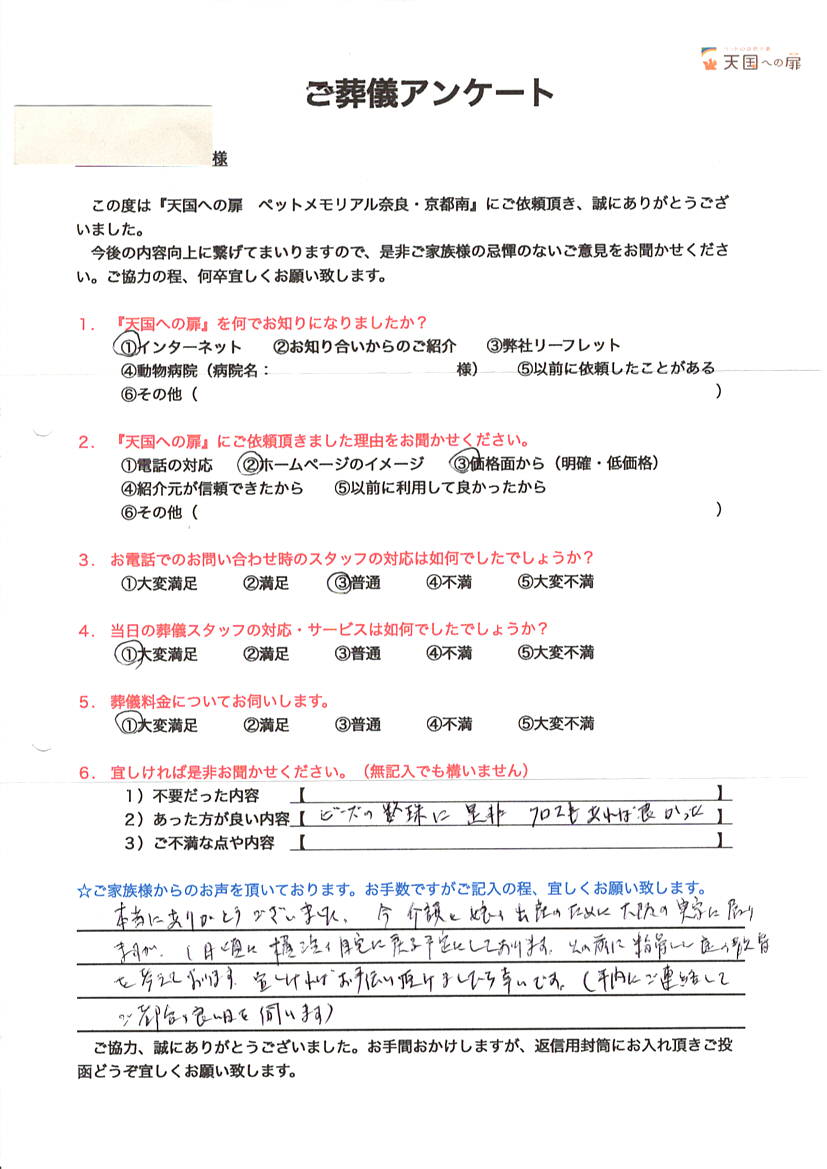 天国への扉
ご葬儀アンケート
様
この度は『天国への扉　ペットメモリアル奈良・京都南』にご依頼頂き、誠にありがとうござ
いました。
今後の内容向上に繋げてまいりますので、是非ご家族様の忌憚のないご意見をお聞かせくださ
い。ご協力の程、何卒宜しくお願い致します。
1．『天国への扉』を何でお知りになりましたか？
①インターネット　②お知り合いからのご紹介　③弊社リーフレット
④動物病院（病院名：　様）　⑤以前に依頼したことがある
⑥その他（　）
2．『天国への扉』にご依頼頂きました理由をお聞かせください。
①電話の対応　②ホームページのイメージ　③価格面から（明確・低価格）
④紹介元が信頼できたから　⑤以前に利用して良かったから
⑥その他（　）
3．お電話でのお問い合わせ時のスタッフの対応は如何でしたでしょうか？
①大変満足　②満足　③普通　④不満　⑤大変不満
4．当日の葬儀スタッフの対応・サービスは如何でしたでしょうか？
①大変満足　②満足　③普通　④不満　⑤大変不満
5．葬儀料金についてお伺いします。
①大変満足　②満足　③普通　④不満　⑤大変不満
6．宜しければ是非お聞かせください。（無記入でも構いません）
1）不要だった内容　【　】
2）あった方が良い内容【ビーズの数珠に是非クロスもあれば良かった】
3）ご不満な点や内容　【　】
☆ご家族様からのお声を頂いております。お手数ですがご記入の程、宜しくお願い致します。
本当にありがとうございました。今 介護と娘の出産のために大阪の実家に居り
ますが、1月頃に 自宅に戻る予定にしております。その前に
を考えております。宜しければお手伝い頂けましたら幸いです。（年内にご連絡して
ご都合の良い日を伺います）
ご協力、誠にありがとうございました。お手間おかけしますが、返信用封筒にお入れ頂きご投
函どうぞ宜しくお願い致します。